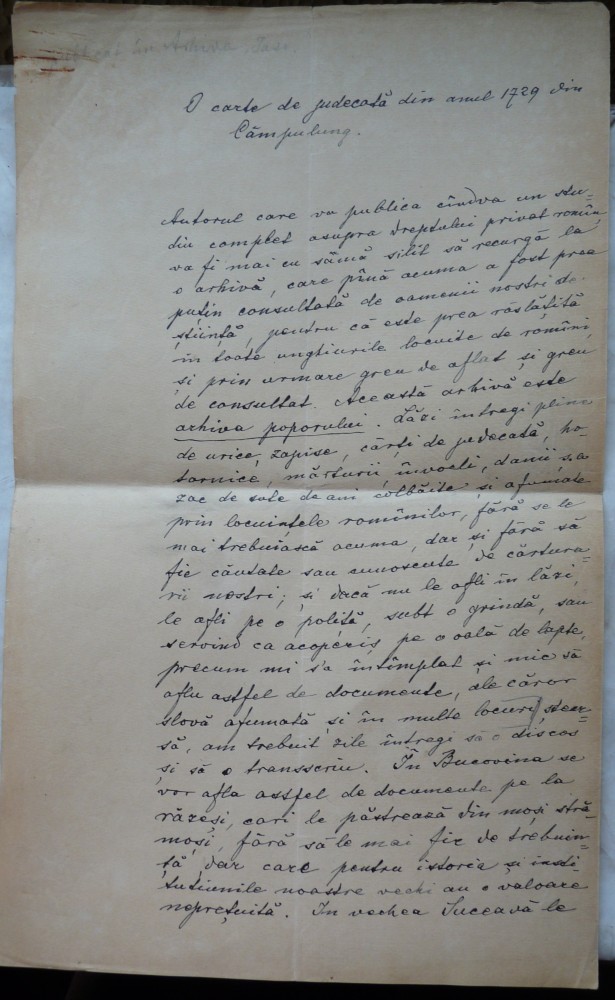 în Arhiva, Iasi.
O carte de judecată din anul 1729 din
Câmpulung.
Autorul care va publica cîndva un stu-
diu complet asupra dreptului privat român,
va fi mai cu sămă silit să recurgă la
o arhivă, care pînă acuma a fost prea
puțin consultată de oamenii nostri de
știință, pentru că este prea răslățită
în toate unghiurile locuite de români,
și prin urmare greu de aflat și greu
de consultat. Această arhivă este
arhiva poporului. Lăzi întregi pline
de urice, zapise, cărți de judecată, ho-
tarnice, mărturii, învoeli, danii ș.a.
zac de sute de ani colbăite și afumate
prin locuințele românilor, fără se le
mai trebuiască acuma, dar și fără să
fie căutate sau cunoscute de cărtura-
rii nostri; și dacă nu le afli în lăzi,
le afli pe o poliță, subt o grindă, sau
servind ca acoperiș pe o oală de lapte,
precum mi s'a întîmplat și mie să
aflu astfel de documente, ale căror
slovă afumată și în multe locuri ștear-
să, am trebuit zile întregi să o discos
și să o transscriu. În Bucovina se
vor afla astfel de documente pe la
răzeși, cari le păstrează din moși stră-
moși, fără să le mai fie de trebuin-
ță, dar care pentru istoria și insti-
tuțiunile noastre vechi au o valoare
neprețuită. In vechea Suceavă le